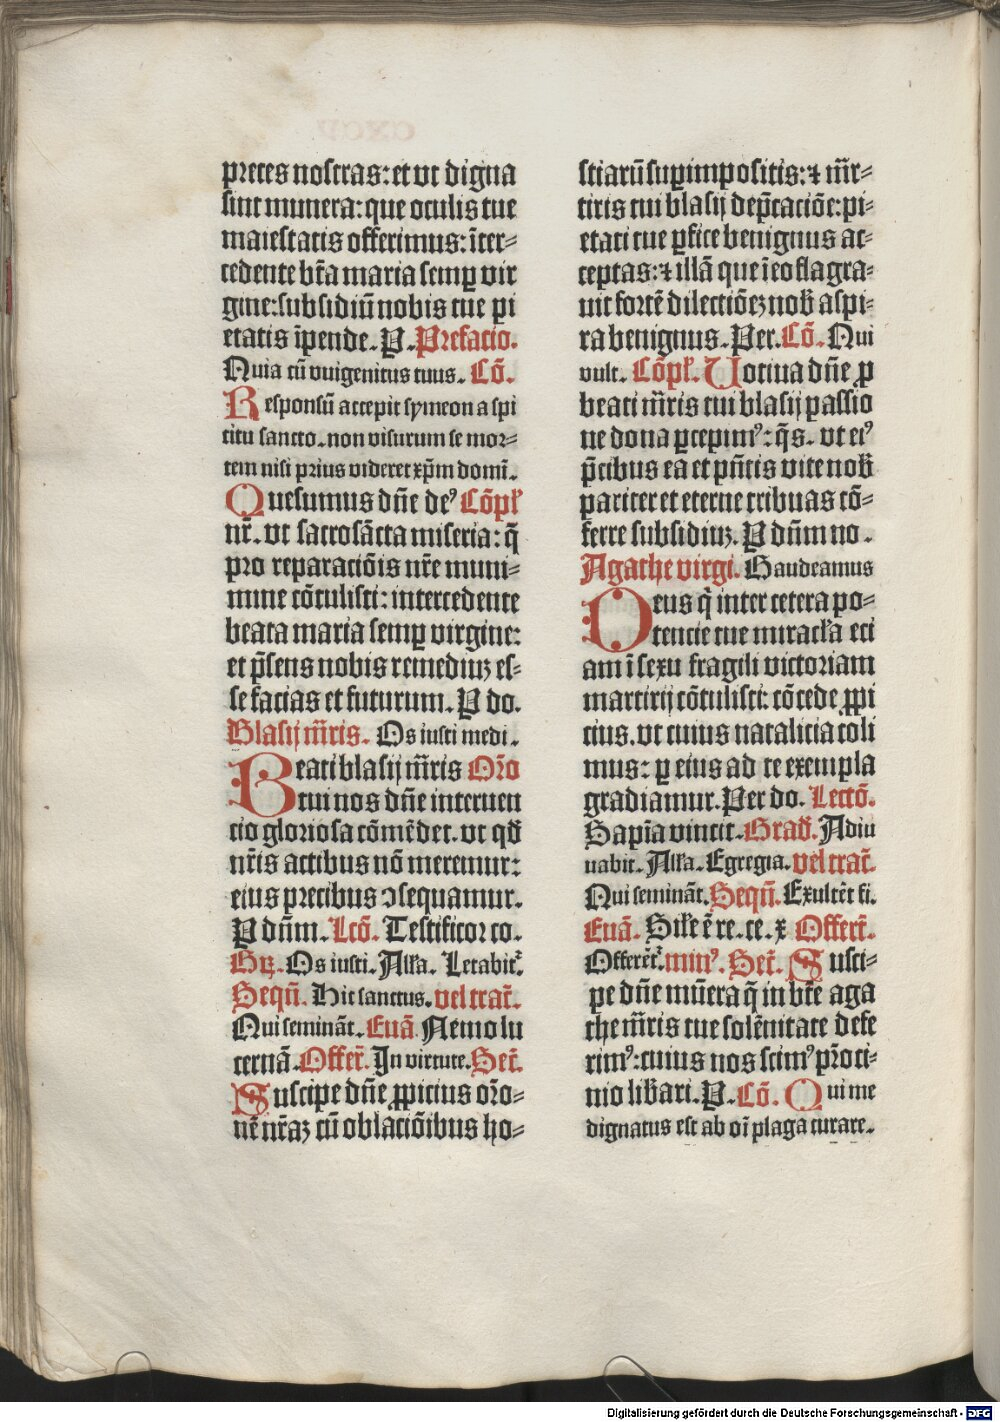 preces nostras: et vt digna
sint munera: que oculis tue
maiestatis offerimus: īter⸗
cedente btā maria semꝑ vir
gine: subsidiū nobis tue pi
etatis īpende. P. Prefacio.
Quia cū vnigenitus tuus. Cō.
Responsū accepit symeon a spi
ritu sancto. non visurum se mor⸗
tem nisi prius videret xp̄m domī.
Quesumus dn̄e de⁹ Cōpl̄
nr̄. vt sacrosācta misteria: q̄
pro reparaciōis nr̄e muni⸗
mine cōtulisti: intercedente
beata maria semꝑ virgine:
et p̄sens nobis remediuz es⸗
se facias et futurum. P do.
Blasij m̄ris. Os iusti medi.
Beati blasij m̄ris Orō
tui nos dn̄e interuen
cio gloriosa cōmēdet. vt qd̄
nr̄is actibus nō meremur:
eius precibus ↄsequamur.
P dn̄m. Lcō. Testificor co.
Gꝝ. Os iusti. All̄a. Letabit̄.
Sequī. Hic sanctus. vel tract̄.
Qui semināt. Euā. Nemo lu
cernā. Offert̄. In virtute. Secr̄.
Suscipe dn̄e ꝓpicius orō⸗
nē nr̄az cū oblaciōibus ho⸗
stiarū suꝑimpositis: ⁊ m̄r⸗
tiris tui blasij dep̄caciōe: pi⸗
etati tue ꝑfice benignus ac⸗
ceptas: ⁊ illā que ī eo flagra⸗
uit fortē dilectiōez nob̄ aspi⸗
ra benignus. Per. Cō. Qui
vult. Cōpl̄. Uotiua dn̄e ꝑ
beati m̄ris tui blasij passio
ne dona ꝑcepim⁹: q̄s. vt ei⁹
p̄cibus ea et pn̄tis vite nob̄
pariter et eterne tribuas cō⸗
ferre subsidiuz. P dn̄m no.
Agathe virgi. Gaudeamus
Deus q̄ inter cetera po⸗
tencie tue miracl̄a eci
am ī sexu fragili victoriam
martirij cōtulisti: cōcede ꝓpi
cius. vt cuius natalicia coli
mus: ꝑ eius ad te exempla
gradiamur. Per do. Lectō.
Sapīa vincit. Grad̄. Adiu
uabit. All̄a. Egregia. vel tract̄.
Qui semināt. Sequī. Exultēt fi.
Euā. Sil̄e ē re. ce. x Offert̄.
Offerēt̄. min⁹. Secr̄. Susci⸗
pe dn̄e mūera q̄ in bt̄e aga
the m̄ris tue solēnitate defe
rim⁹: cuius nos scim⁹ pr̄oci⸗
nio lib̄ari. P. Cō. Qui me
dignatus est ab oī plaga curare.
Digitalisierung gefördert durch die Deutsche Forschungsgemeinschaft - DFG